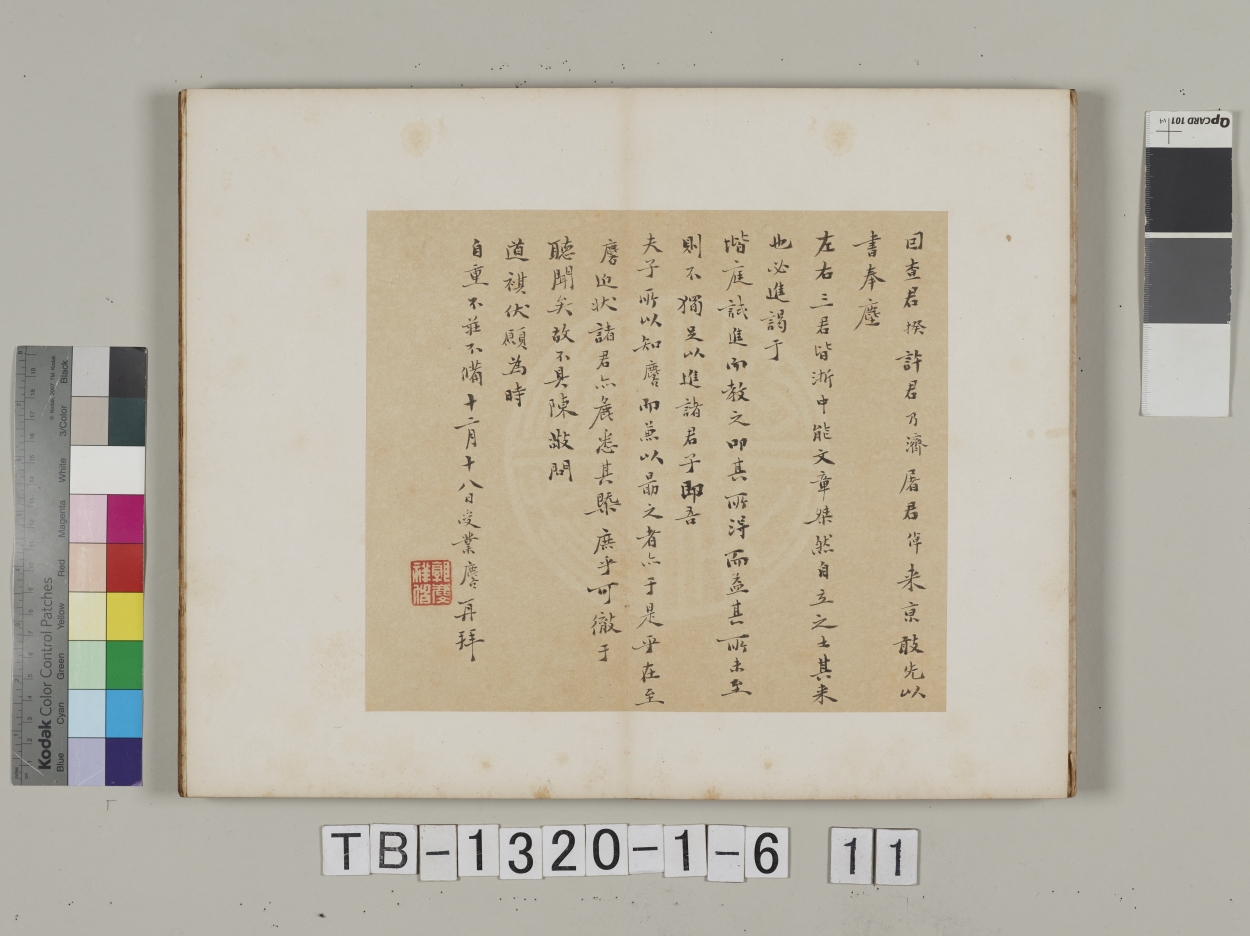 曰查君揆許君乃濟屠君倬来京敢先以
書奉塵
左右三君皆浙中能文章㛄然自立之士其来
也必進謁于
堦庭試進而教之叩其所得而益其所未至
則不獨足以進諸君子即吾
夫子所以知麐而兼以勗之者亦于是乎在至
麐近状諸君亦能悉其槩庶乎可徹于
聽聞矣故不具陳敬問
道祺伏願為時
自重不莊不備十二月十八日受業麐再拜
郭麐祥伯
Kodak Color Control Patches
Blue Cyan Green Yellow Red Magenta White 3/Color Black
QPCARD 101
TB-1320-1-6 11